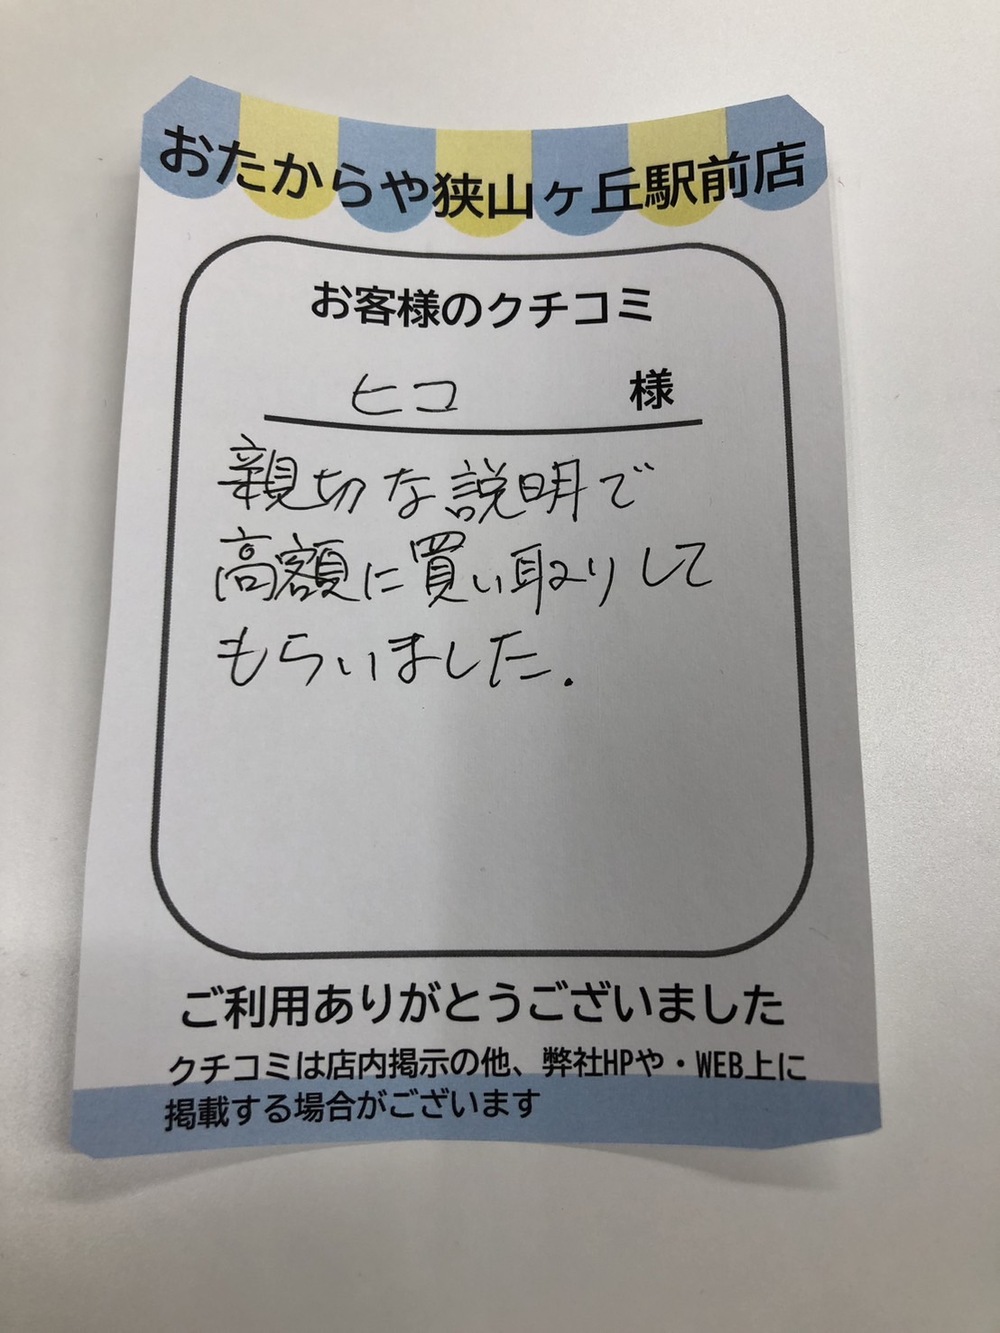 おたからや狭山ヶ丘駅前店
お客様のクチコミ
ヒコ 様
親切な説明で
高額に買い取りして
もらいました.
ご利用ありがとうございました
クチコミは店内掲示の他、弊社HPや・WEB上に
掲載する場合がございます